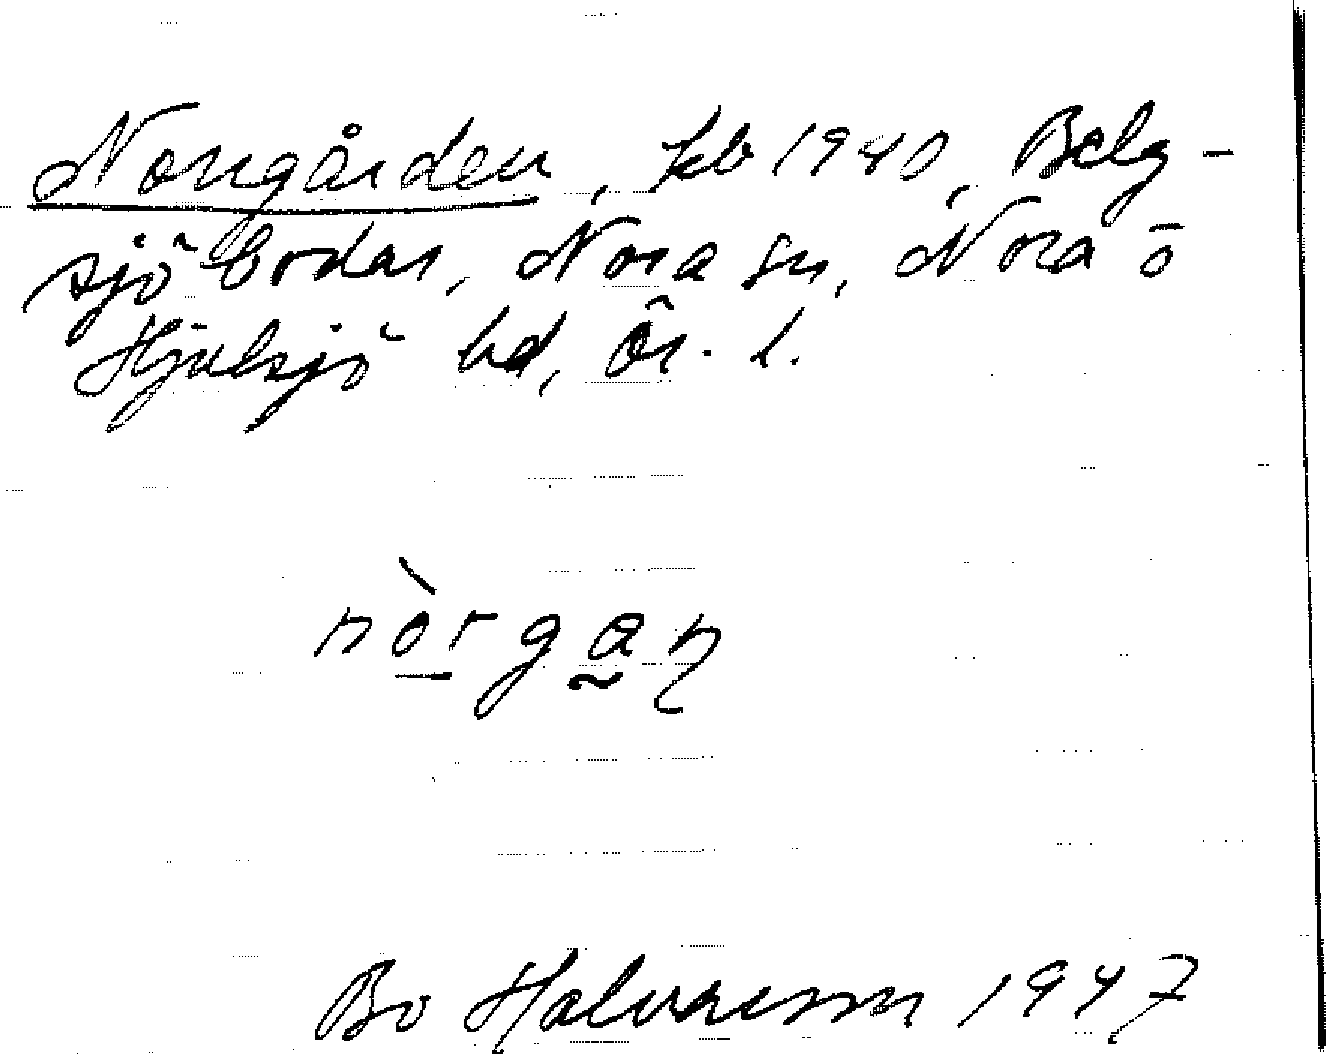 Norrgården, kb 1940, Belg-
sjöbodar, Nora sn, Nora o
Hjulsjö hd, Ör. l.
nòrgaɳ
Bo Halvarsson 1947